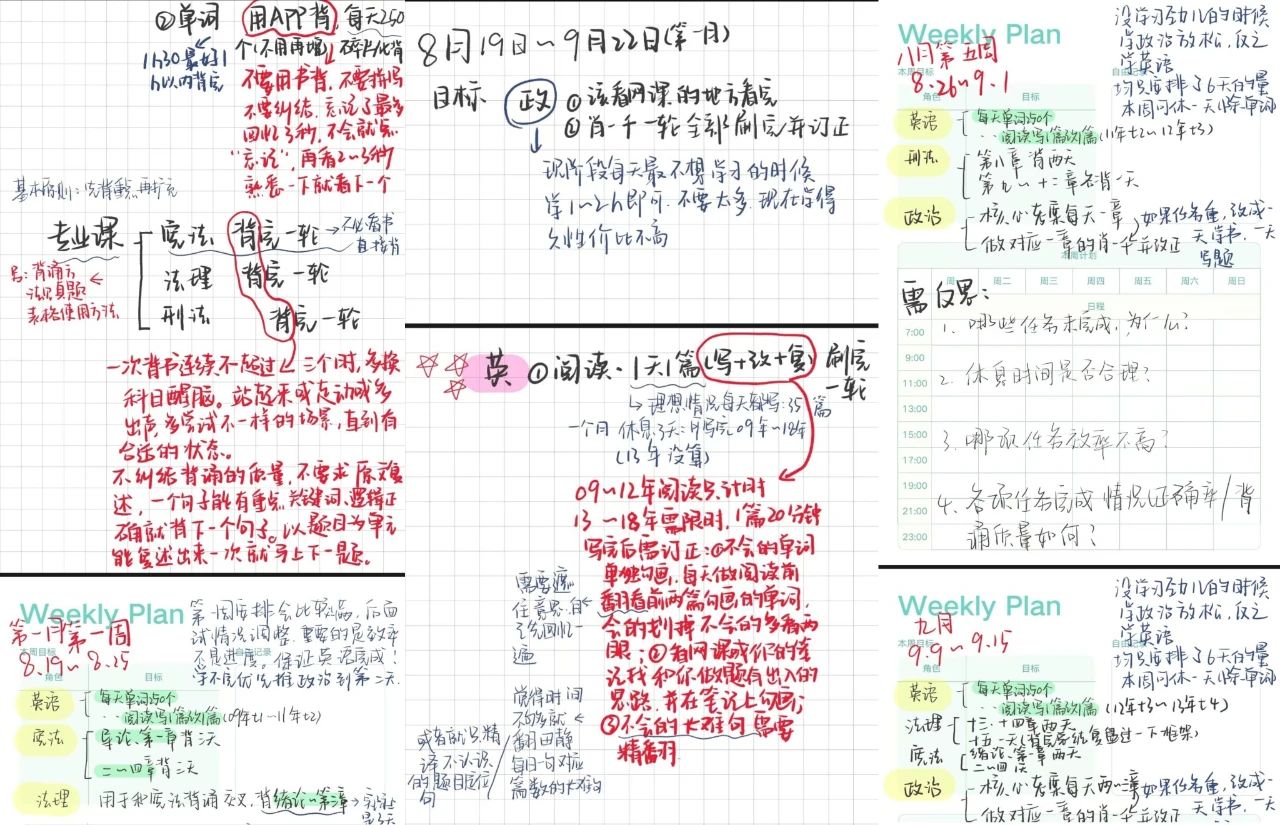 ②单词 用APP背,每天250
个(不用再增) 碎片化背
1h30最好1
h以内背完
不要用书背,不要拼写
不要纠结,忘记了最多
回忆3秒,不会就点
“忘记”,再看2~3秒
熟悉一下就看下一个
基本原则:先背重点,再扩充
专业课
宪法 背完一轮
不必看书
直接背
法理 背完一轮
刑法 背完一轮
背诵方
法见真题
表格使用方法
一次背书连续不超过三个小时,多换
科目醒脑。站起来或走动或多
出声,多尝试不一样的场景,直到有
合适的状态。
不纠结背诵的质量,不要求原文复
述,一个句子能有重点关键词、逻辑正
确就背下一个句子。以题目为单元
能复述出来一次就马上下一题。
8月19日~9月22日(第一月)
目标 政 ①该看网课的地方看完
②肖一千一轮全部刷完并订正
现阶段每天最不想学习的时候
学1~2h即可,不要太多,现在学得
久性价比不高
英 ①阅读·1天1篇(写+改+复)刷完
一轮
理想情况每天
篇
一个月休息3天:可写完09年~18年
(13年没算)
09~12年阅读只计时
13~18年需限时,1篇20分钟
写完后需订正:①不会的单词
单独勾画,每天做阅读前
翻看前两篇勾画的单词,
会的划掉不会的多看两
眼;②看网课或你的笔
记找和你做题有出入的
思路,并在笔记上勾画;
③不会的长难句需要
精翻
需要遮
住意思,自
己先回忆一
遍
觉得时间
不够多就
翻田静
每日一句对应
篇数的长难句
或者就只精
读不认识
的题目定位
句
Weekly Plan
八月第五周
本周目标
8.26~9.1
角色 目标
自由记录
没学习劲儿的时候
学政治放松,反之
学英语
均只安排了6天的量
本周可休一天(除单词
英语 每天单词250个
阅读写1篇改1篇(11年t2~12年t3)
刑法 第八章背两天
第九~十二章各背一天
政治 核心考案每天一章
做对应一章的肖一千并改正
如果任务重,改成一
天学书,一天
写题
本周计划
周二 周三 周四 周五 周六 周日
日程
需反思:
7:00
1. 哪些任务未完成,为什么?
9:00
2. 休息时间是否合理?
11:00
13:00
15:00
3. 哪项任务效率不高?
17:00
19:00
4. 各项任务完成情况正确率/背
21:00
诵质量如何?
23:00
Weekly Plan
第一月第一周
本周目标
8.19~8.25
角色 目标
自由记录
第一周安排会比较少,后面
试情况调整,重要的是效率
不是进度。保证英语完成!
学不完优先推政治到第二天
英语 每天单词250个
阅读写1篇改1篇(09年t1~11年t2)
宪法 导论、第一章背3天
二~四章背三天
法理 用于和宪法背诵交叉,背绪论~第三章
Weekly Plan
九月
本周目标
9.9~9.15
角色 目标
自由记录
没学习劲儿的时候
学政治放松,反之
学英语
均只安排了6天的量
本周可休一天(除单词
英语 每天单词250个
阅读写1篇改1篇(12年t3~13年t4)
法理 十三、十四章两天
十五一天(背完后统复盘过一下框架)
宪法 绪论、第一章两天
二~四1天
政治 核心考案每天两一章
做对应一章的肖一千并改正
如果任务重,改成一
天学书,一天
写题